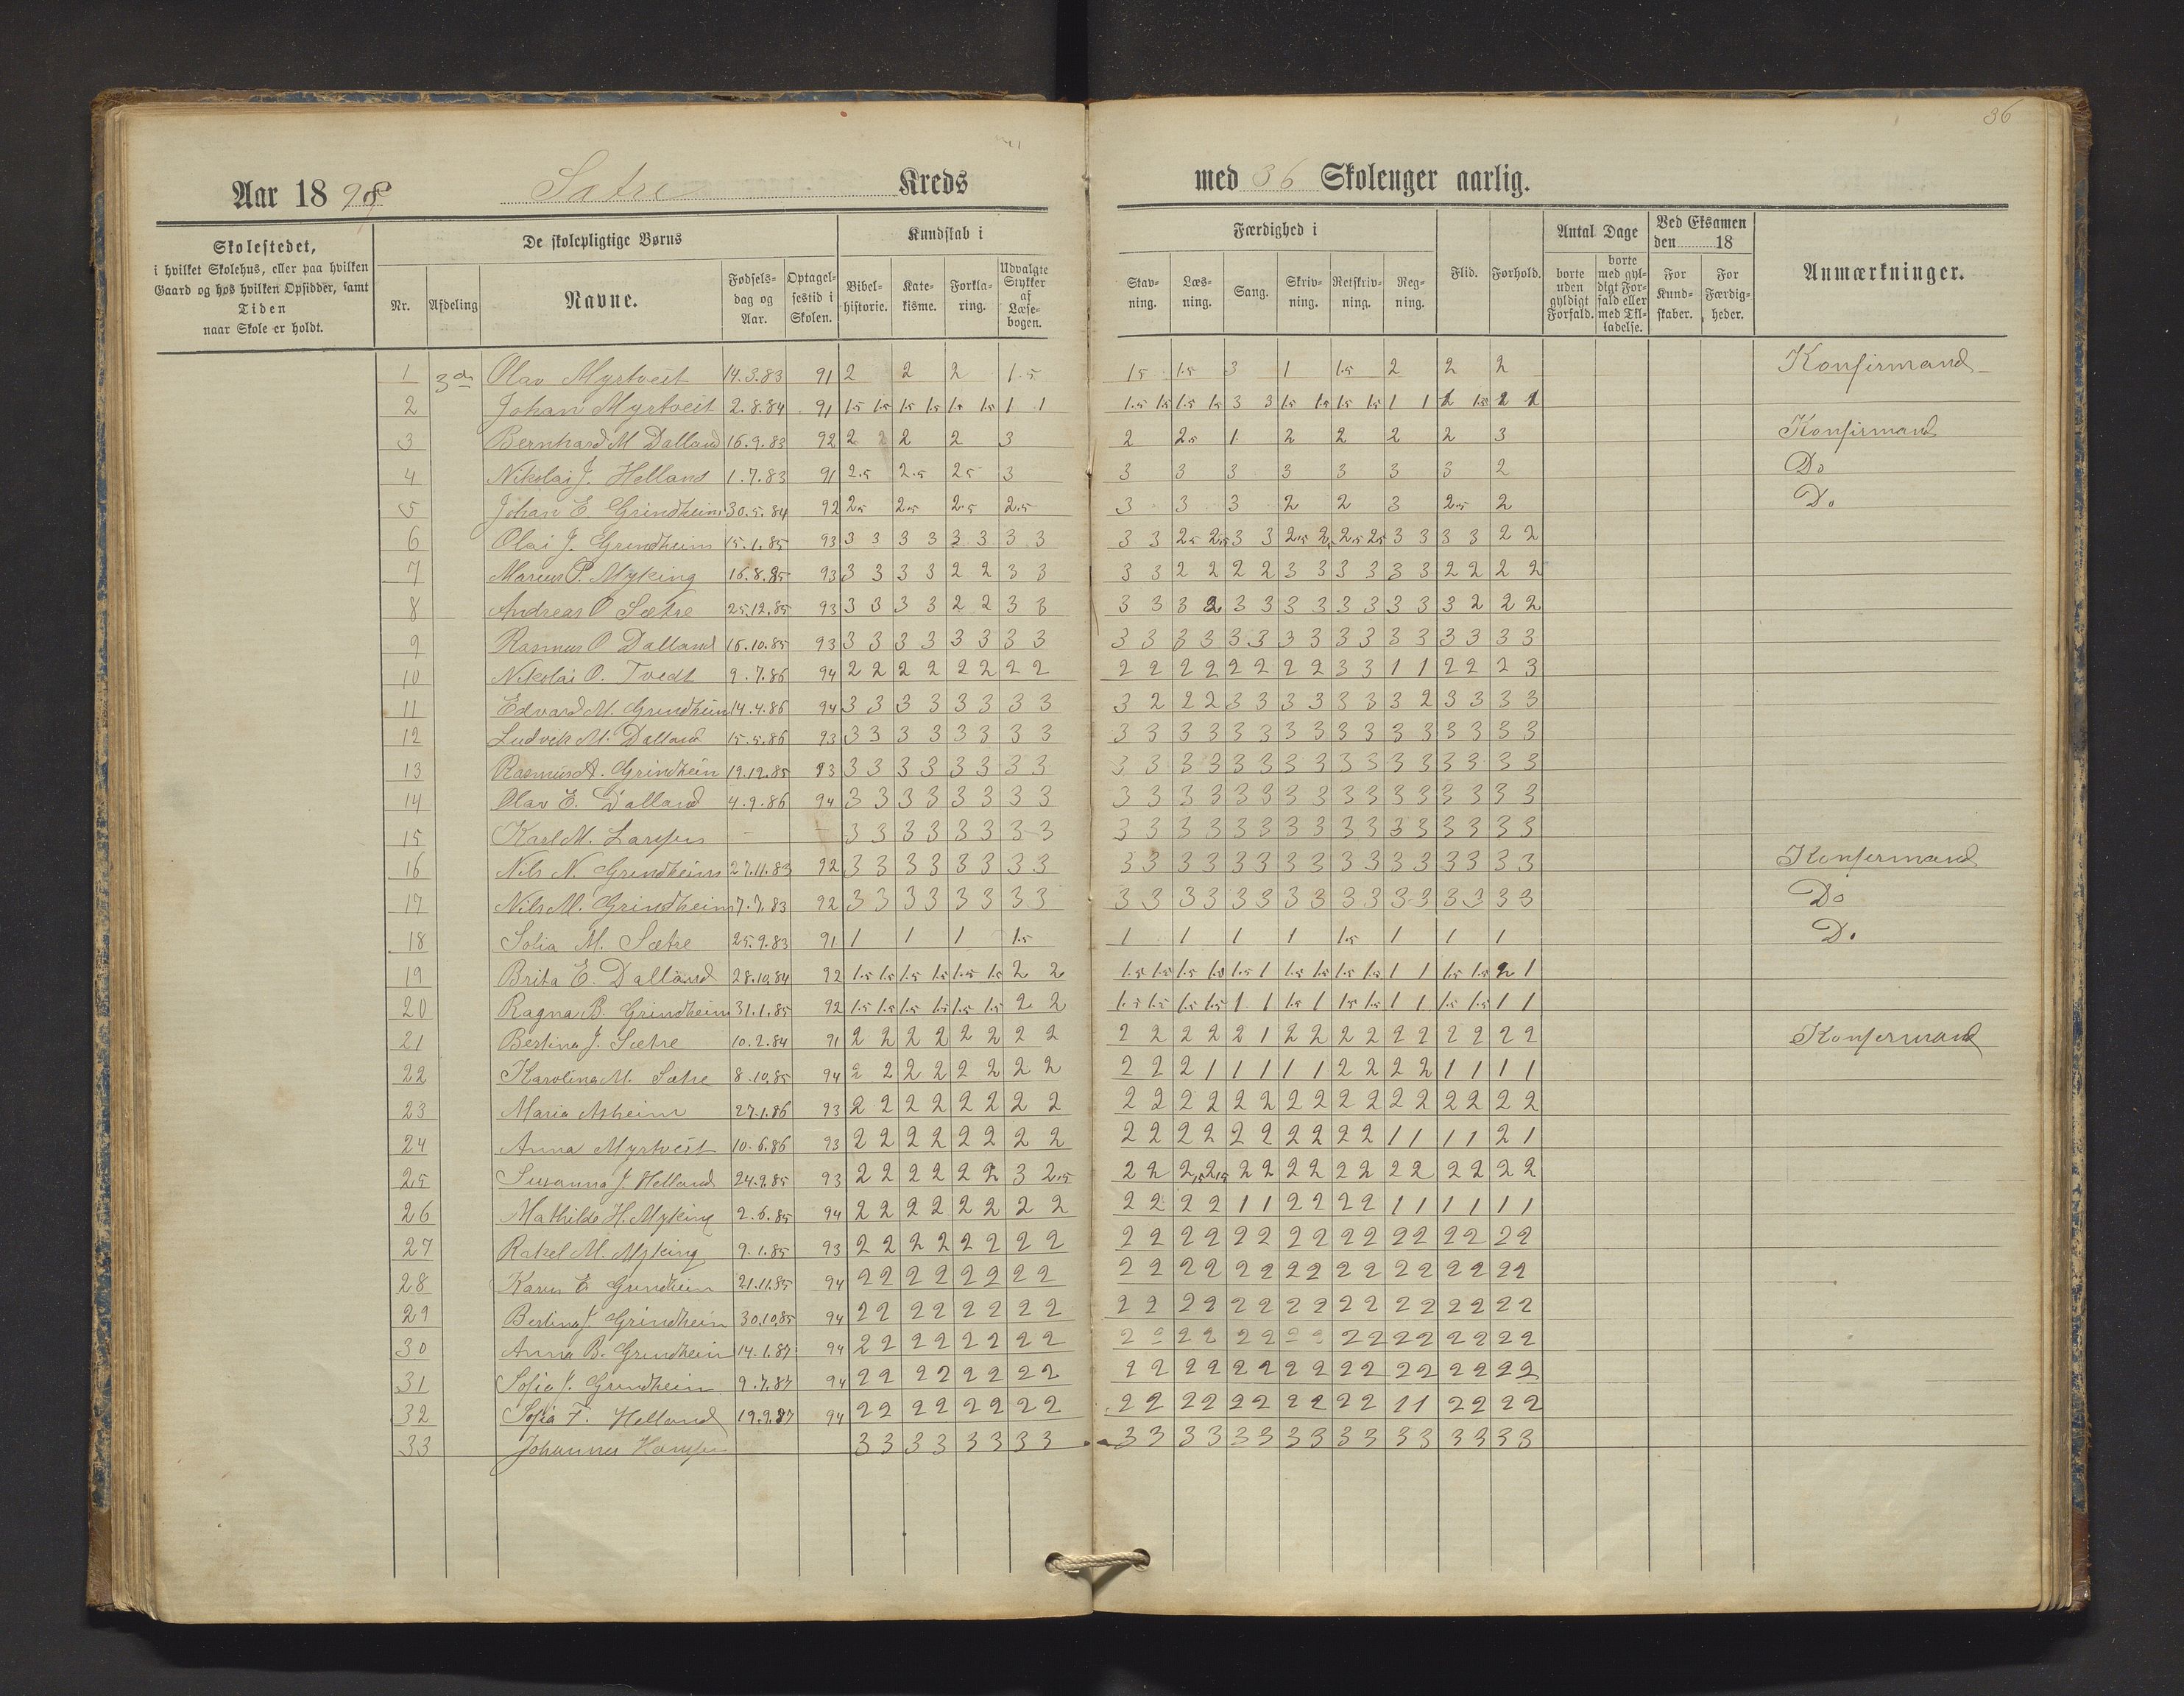 36
Aar 1898 Sætre Kreds med 36 Skoleuger aarlig.
Skolestedet, i hvilket Skolehus, eller paa hvilken Gaard og hos hvilken Opsidder, samt Tiden naar Skole er holdt.
De skolepligtige Børns
Nr. Afdeling Navne. Fødselsdag og Aar. Optagelsestid i Skolen.
Kundskab i
Bibelhistorie. Katekisme. Forklaring. Udvalgte Stykker af Læsebogen.
Færdighed i
Stavning. Læsning. Sang. Skrivning. Retskrivning. Regning.
Flid. Forhold.
Antal Dage
borte uden gyldigt Forfald. borte med gyldigt Forfald eller med Tilladelse.
Ved Eksamen den 18
For Kundskaber. For Færdigheder.
Anmærkninger.
1 3die Olav Myrtveit 14.3.83 91 2 2 2 1.5 1.5 1.5 3 1 1.5 2 2 2 Konfirmand
2 Johan Myrtveit 2.8.84 91 1.5 1.5 1.5 1.5 1.5 1.5 1 1 1.5 1.5 1.5 1.5 3 3 1.5 1.5 1.5 1.5 1 1 1 1.5 2 1
3 Bernhard M Dalland 16.9.83 92 2 2 2 2 3 2 2.5 1 2 2 2 2 3 Konfirmand
4 Nikolai J. Helland 1.7.83 91 2.5 2.5 2.5 3 3 3 3 3 3 3 3 2 Do
5 Johan E. Grindheim 30.5.84 92 2.5 2.5 2.5 2.5 3 3 3 2 2 3 2.5 2 Do
6 Olai J. Grindheim 15.1.85 93 3 3 3 3 3 3 3 3 3 3 2.5 2.5 3 3 2.5 2.5 2.5 2.5 3 3 3 3 2 2
7 Marcus P. Myking 16.8.85 93 3 3 3 3 2 2 3 3 3 3 2 2 2 2 3 3 3 3 3 3 2 2 2 2
8 Andreas O Sætre 25.12.85 93 3 3 3 3 2 2 3 3 3 3 3 2 3 3 3 3 3 3 3 3 3 2 2 2
9 Rasmus O Dalland 16.10.85 93 3 3 3 3 3 3 3 3 3 3 3 3 3 3 3 3 3 3 3 3 3 3 3 3
10 Nikolai O. Tvedt 9.7.86 94 2 2 2 2 2 2 2 2 2 2 2 2 2 2 2 2 3 3 1 1 2 2 2 3
11 Edvard M. Grindheim 14.4.86 94 3 3 3 3 3 3 3 3 3 2 2 2 3 3 3 3 3 3 3 2 3 3 3 3
12 Ludvik M. Dalland 15.5.86 93 3 3 3 3 3 3 3 3 3 3 3 3 3 3 3 3 3 3 3 3 3 3 3 3
13 Rasmus A. Grindheim 19.12.85 93 3 3 3 3 3 3 3 3 3 3 3 3 3 3 3 3 3 3 3 3 3 3 3 3
14 Olav E. Dalland 4.9.86 94 3 3 3 3 3 3 3 3 3 3 3 3 3 3 3 3 3 3 3 3 3 3 3 3
15 Karl M. Larsen – – 3 3 3 3 3 3 3 3 3 3 3 3 3 3 3 3 3 3 3 3 3 3 3 3
16 Nils N. Grindheim 27.11.83 92 3 3 3 3 3 3 3 3 3 3 3 3 3 3 3 3 3 3 3 3 3 3 3 3 Konfermand
17 Nils M. Grindheim 7.7.83 92 3 3 3 3 3 3 3 3 3 3 3 3 3 3 3 3 3 3 3 3 3 3 3 3 Do
18 Sofia M. Sætre 25.9.83 91 1 1 1 1.5 1 1 1 1 1.5 1 1 1 Do
19 Brita E. Dalland 28.10.84 92 1.5 1.5 1.5 1.5 1.5 1.5 2 2 1.5 1.5 1.5 1.5 1.5 1 1.5 1.5 1.5 1.5 1 1 1.5 1.5 2 1
20 Ragna B. Grindheim 31.1.85 92 1.5 1.5 1.5 1.5 1.5 1.5 2 2 1.5 1.5 1.5 1.5 1 1 1.5 1 1.5 1.5 1 1 1.5 1.5 1 1
21 Bertina J. Sætre 10.2.84 91 2 2 2 2 2 2 2 2 2 2 2 2 2 1 2 2 2 2 2 2 2 2 2 2 Konfermand
22 Karolina M. Sætre 8.10.85 94 2 2 2 2 2 2 2 2 2 2 2 1 1 1 1 1 2 2 2 2 1 1 1 1
23 Maria Asheim 27.1.86 93 2 2 2 2 2 2 2 2 2 2 2 2 2 2 2 2 2 2 2 2 2 2 2 2
24 Anna Myrtveit 10.6.86 93 2 2 2 2 2 2 2 2 2 2 2 2 2 2 2 2 2 2 1 1 1 1 2 1
25 Susanna J. Helland 24.9.85 93 2 2 2 2 2 2 3 2.5 2 2 2.5 2.5 2 2 2 2 2 2 2 2 2 2 2 2
26 Mathilde H. Myking 2.6.85 94 2 2 2 2 2 2 2 2 2 2 2 2 1 1 2 2 2 2 1 1 1 1 1 1
27 Rakel M. Myking 9.1.85 93 2 2 2 2 2 2 2 2 2 2 2 2 2 2 2 2 2 2 2 2 2 2 2 2
28 Karen E Grindheim 21.11.85 94 2 2 2 2 2 2 2 2 2 2 2 2 2 2 2 2 2 2 2 2 2 2 2 2
29 Bertina J. Grindheim 30.10.85 94 2 2 2 2 2 2 2 2 2 2 2 2 2 2 2 2 2 2 2 2 2 2 2 2
30 Anna B. Grindheim 14.1.87 94 2 2 2 2 2 2 2 2 2 2 2 2 2 2 2 2 2 2 2 2 2 2 2 2
31 Sofia J. Grindheim 9.7.87 94 2 2 2 2 2 2 2 2 2 2 2 2 2 2 2 2 2 2 2 2 2 2 2 2
32 Sofia F. Helland 19.9.87 94 2 2 2 2 2 2 2 2 2 2 2 2 2 2 2 2 2 2 1 1 2 2 2 2
33 Johannes 3 3 3 3 3 3 3 3 3 3 3 3 3 3 3 3 3 3 3 3 3 3 3 3